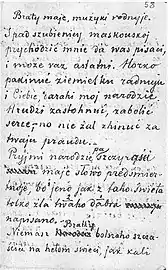 53
Braty maje, mużyki rodnyje.
Z pad szubienicy maskouskoj
prychodzić mnie da was pisaci,
i może raz astatni. Horko
pakinuć ziemielku radnuju
i Ciebie darahi moj narodzie.
Hrudzi zastohnuć, zabolić
serce, no nie żal zhinuć za
twaju praudu...
Pryjmi narodzie pa szczyrosci
maje słowo predśmier-
tnoje, bo jeno jak z taho świeta
tolko dla twaho dobra
napisano.
Braty
Niemasz bolszaho szcza-
ścia na hetom świeci, jak kali